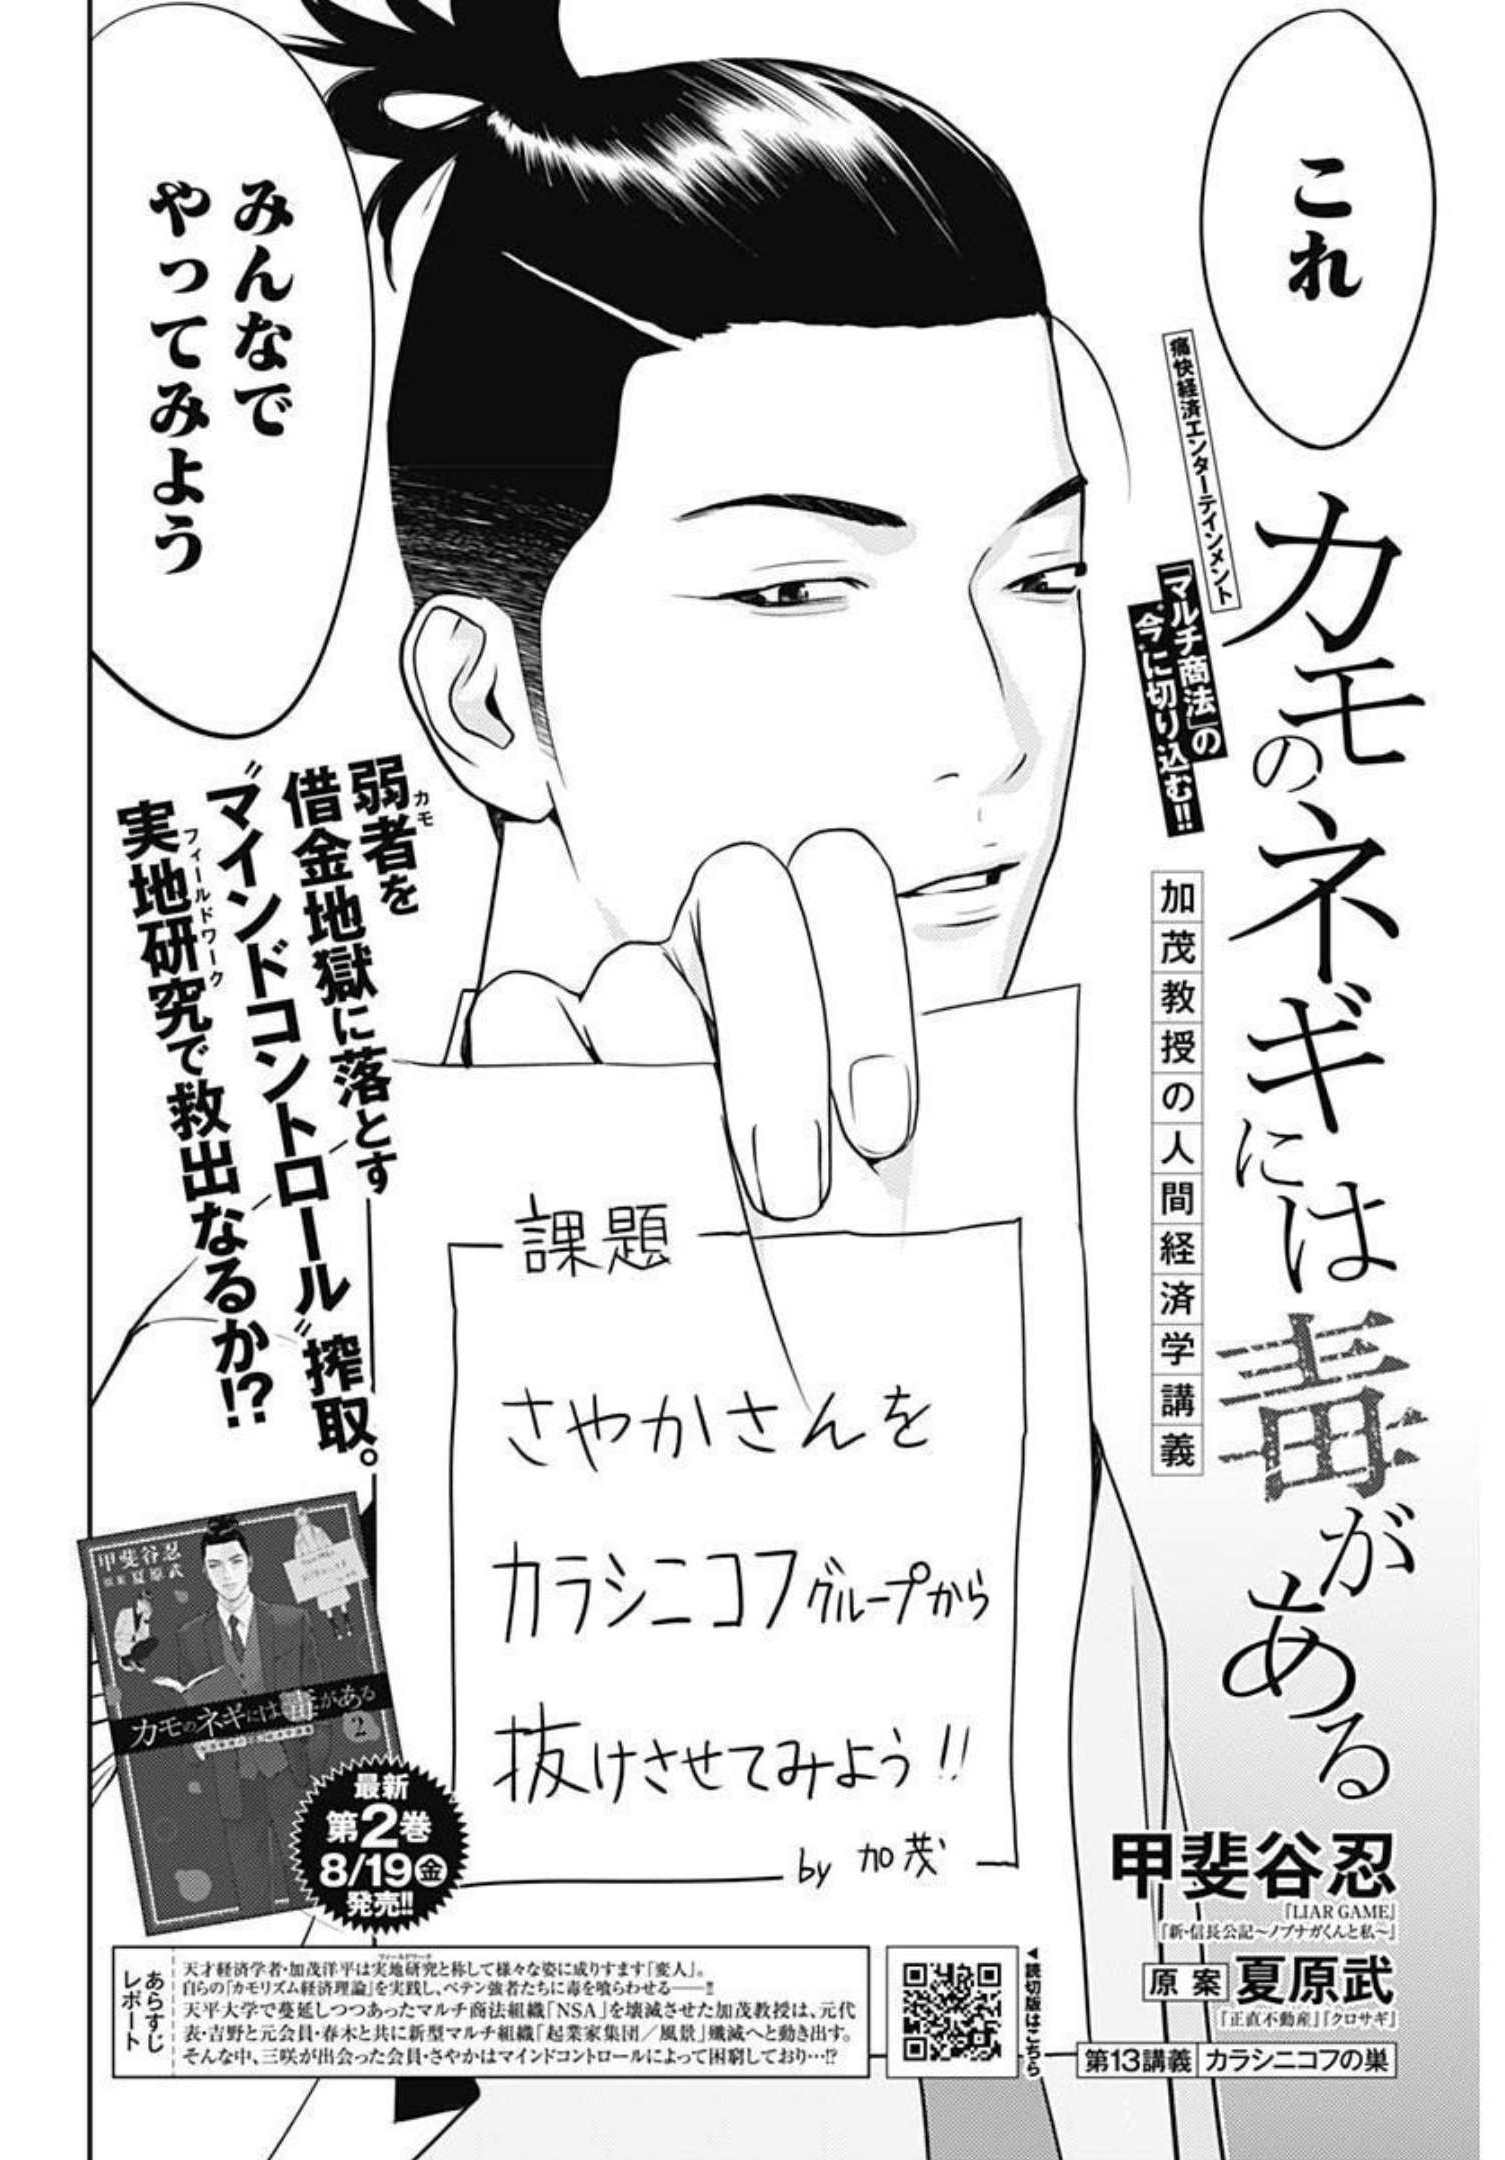 これ
痛快経済エンターテインメント
「マルチ商法」の
“今”に切り込む!!
カモのネギには毒がある
加茂教授の人間経済学講義
甲斐谷忍
『LIAR GAME』
『新・信長公記〜ノブナガくんと私〜』
原案 夏原武
『正直不動産』『クロサギ』
第13講義 カラシニコフの巣
みんなで
やってみよう
弱者を
カモ
借金地獄に落とす
“マインドコントロール”搾取。
実地研究で救出なるか!?
フィールドワーク
課題
さやかさんを
カラシニコフグループから
抜けさせてみよう!!
by 加茂
甲斐谷忍
原案 夏原武
カモのネギには毒がある
2
最新
第2巻
8/19㊎
発売!!
あらすじ
レポート
フィールドワーク
天才経済学者・加茂洋平は実地研究と称して様々な姿に成りすます「変人」。
自らの「カモリズム経済理論」を実践し、ペテン強者たちに毒を喰らわせる——!!
天平大学で蔓延しつつあったマルチ商法組織「NSA」を壊滅させた加茂教授は、元代
表・吉野と元会員・春木と共に新型マルチ組織「起業家集団／風景」殲滅へと動き出す。
そんな中、三咲が出会った会員・さやかはマインドコントロールによって困窮しており…!?
◀読切版はこちら